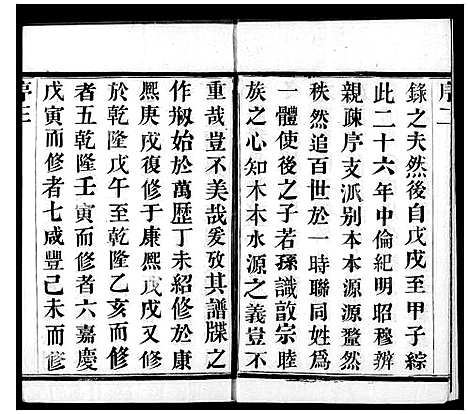 序二
錄之夫然後自戊戌至甲子綜
此二十六年中倫紀明昭穆辨
親疎序支派別本本源源螽然
秩然追百世於一時聯同姓為
一體使後之子若孫識敦宗睦
族之心知木本水源之義豈不
重哉豈不美哉爰攷其譜牒之
作剏始於萬歷丁未紹修於康
熈庚戌復修于康熈戊戌又修
於乾隆戊午至乾隆乙亥而修
者五乾隆壬寅而修者六嘉慶
戊寅而修者七咸豐己未而修
序三